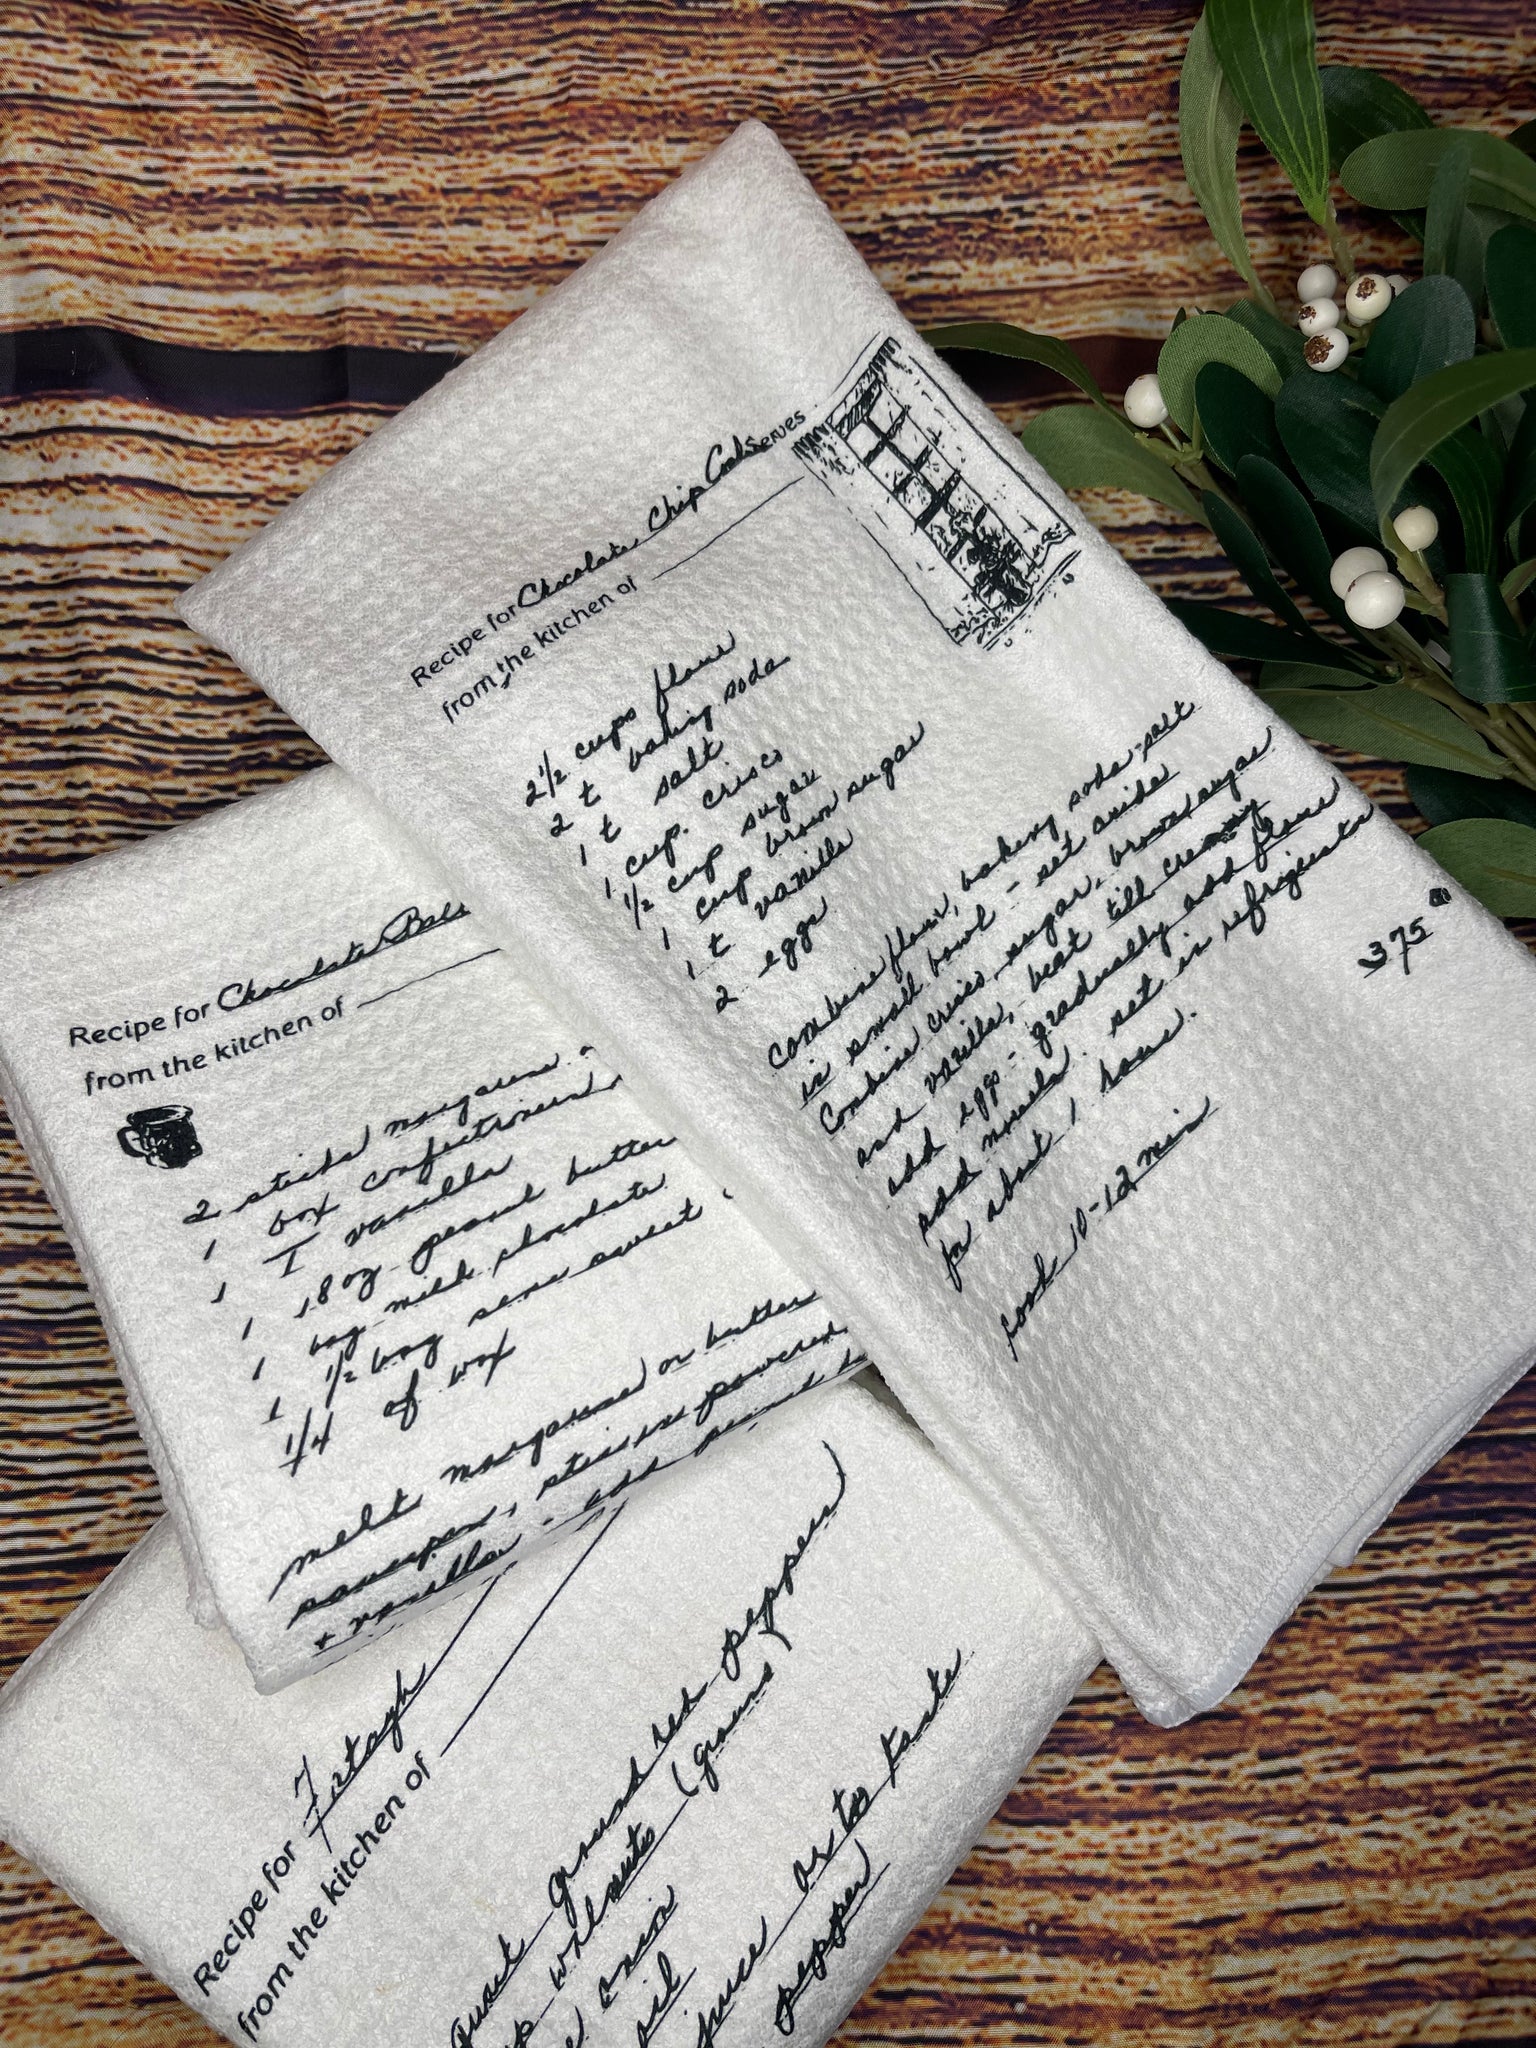 Recipe for Chocolate Chip Cook Serves
from the kitchen of
2 1/2 cups flour
2 t baking soda
1 t salt
1 cup. crisco
1/2 cup sugar
1 cup brown sugar
1 t vanilla
2 eggs
Combine flour, baking soda-salt
in small bowl - set aside
Combine crisco, sugar, brown sugar
and vanilla, beat till creamy
add eggs - gradually add flour
add morsels. set in refrigerator
for about 1 hour.
375
Cook 10-12 min
Recipe for Chocolate Bal
from the kitchen of
2 sticks margarine
1 box confectioners
1 T vanilla
1 18 oz peanut butter
1 bag milk chocolate
1 1/2 bag semi sweet
1/4 of wax
melt margarine or butter
saucepan, stir in powered
+ vanilla - add peanut
Recipe for
from the kitchen of
quart ground red pepper
walnuts (ground)
onion
oil
juice or to taste
pepper